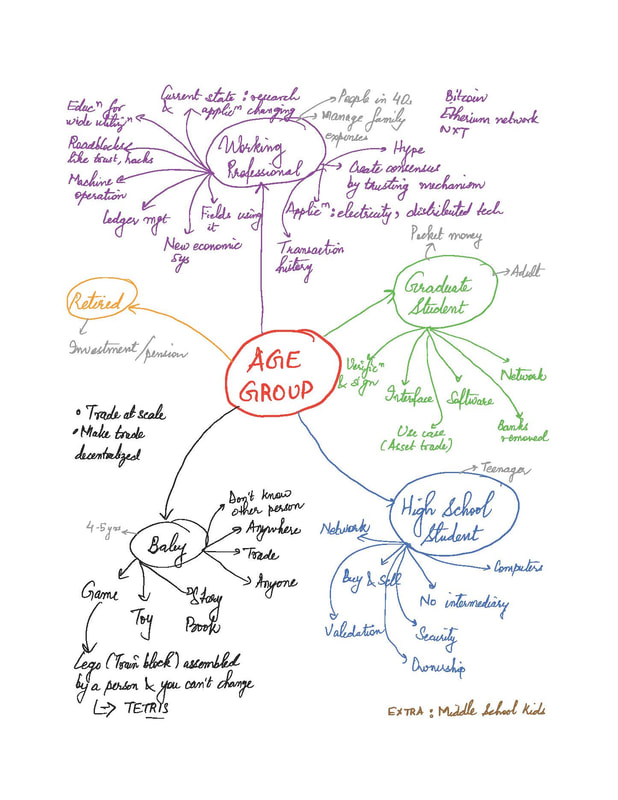 Current state : research
& applicⁿ changing
Educⁿ for
wide utilizⁿ
Roadblocks
like trust, hacks
Machine
operation
Ledger mgt
New economic
sys
Fields using
it
Transaction
history
Working
Professional
People in 40s
Manage family
expenses
Hype
Create consensus
by trusting mechanism
Applicⁿ : electricity, distributed tech
Bitcoin
Etherium network
NXT
Retired
Investment/pension
AGE
GROUP
Pocket money
Adult
Graduate
Student
Verificⁿ
& sign
Interface
Use case
(Asset trade)
Software
Banks
removed
Network
• Trade at scale
• Make trade
decentralized
4-5 yrs
Baby
Don't know
other person
Anywhere
Trade
Anyone
Game
Toy
Story
Book
Lego (Town block) assembled
by a person & you can't change
↳ TETRIS
Teenager
High School
Student
Network
Buy & Sell
Validation
Computers
No intermediary
Security
Ownership
EXTRA : Middle School Kids